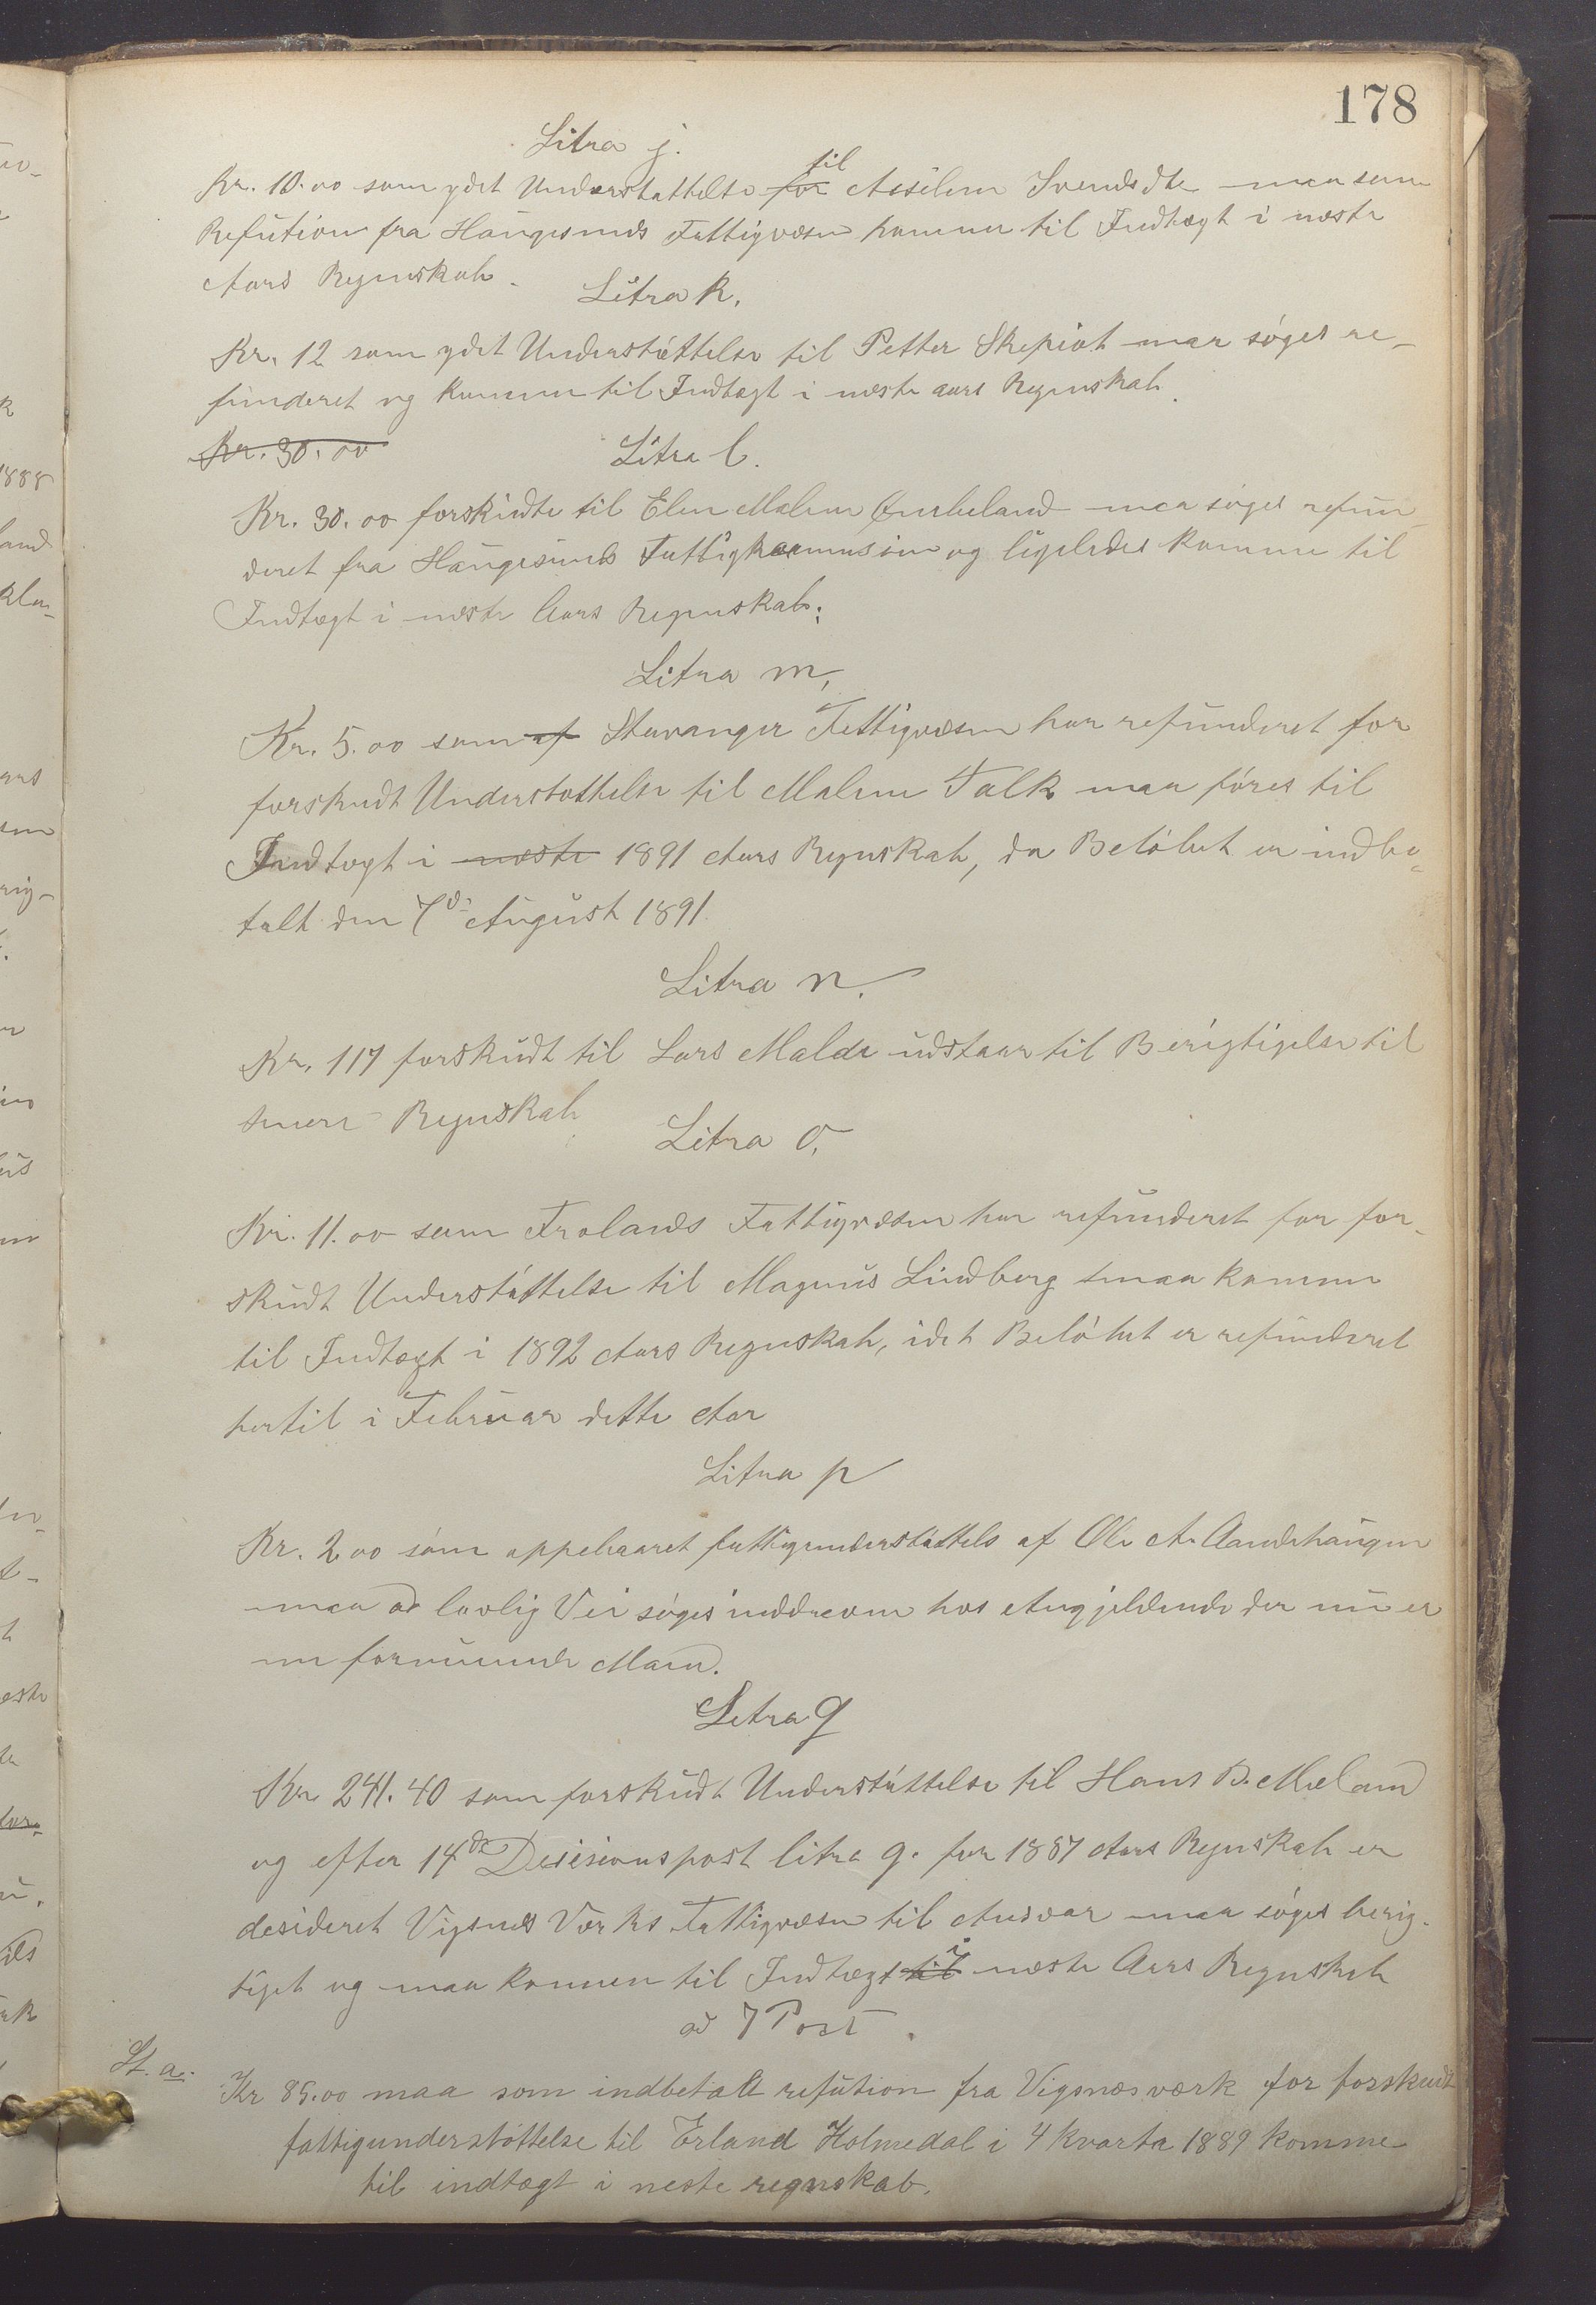 178
Litra j.
Kr. 10.00 som ydet Understøttelse for til Assilene Svendsdtr maa som
Refution fra Haugesunds Fattigvæsen komme til Indtægt i næste
Aars Regnskab.
Litra k.
Kr. 12 som ydet Understøttelse til Petter maa søges re-
funderet og komme til Indtægt i næste aars Regnskab.
Kr. 30.00 Litra l.
Kr. 30.00 forskudte til Elen Malene maa søges refun-
deret fra Haugesunds Fattigkommission og ligeledes komme til
Indtægt i næste Aars Regnskab.
Litra m,
Kr. 5.00 som af Stavanger Fattigvæsen har refunderet for
forskudt Understøttelse til Malene Falk maa føres til
Indtægt i næste 1891 Aars Regnskab, da Beløbet er indbe-
talt den 7de August 1891.
Litra n.
Kr. 117 forskudt til Lars Malde udstaar til Berigtigelse til
senere Regnskab
Litra o.
Kr. 11.00 som Frolands Fattigvæsen har refunderet for for-
skudt Understøttelse til Magnus Lindberg maa komme
til Indtægt i 1892 Aars Regnskab, idet Beløbet er refunderet
hertil i Februar dette Aar
Litra p
Kr. 2.00 som oppebaaret fattigunderstøttels af Ole A. Aandehaugen
maa ad lovlig Vei søges inddreven hos Angjeldende der nu er
en formuende Mand.
Litra q
Kr. 241.40 som forskudt Understøttelse til Hans B. Mæland
og efter 14de Desisionspost litra q. for 1887 Aars Regnskab er
desideret Vigsnes Værks Fattigvæsen til Ansvar maa søges berig-
tiget og maa komme til Indtægt til i næste Aars Regnskab
ad 7 Post.
Lt. a. Kr 85.00 maa som indbetalt refution fra Vigsnæsværk for forskudt
fattigunderstøttelse til Erland Holmedal i 4 kvartal 1889 komme
til indtægt i neste regnskab.